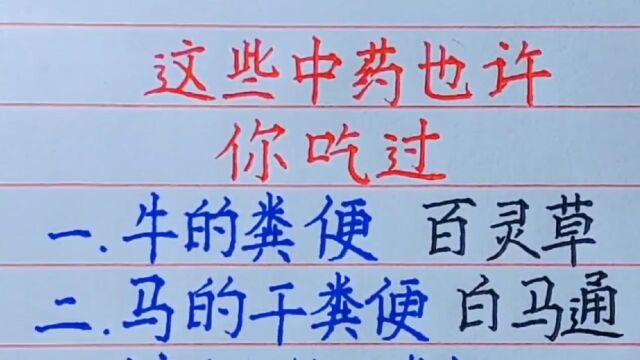 这些中药也许
你吃过
一.牛的粪便 百灵草
二.马的干粪便 白马通